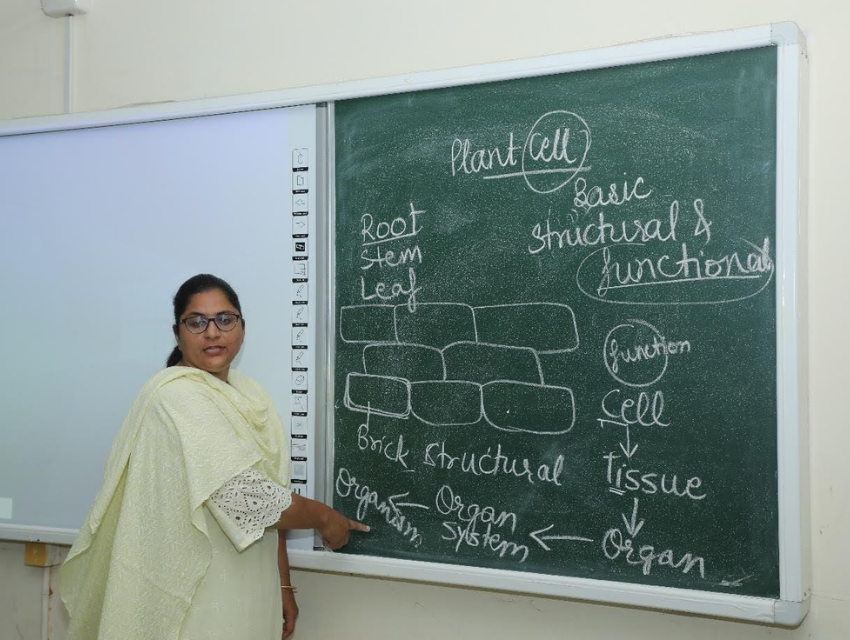 Plant Cell
Basic
Structural &
functional
Root
Stem
Leaf
function
Cell
Tissue
Organ
Organ
System
Organism
Brick Structural